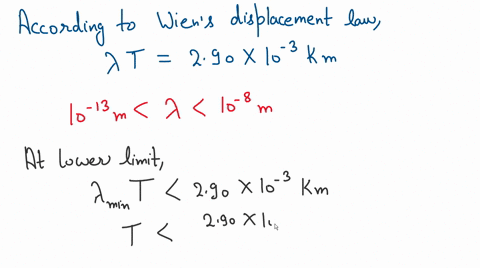 According to Wien's displacement law,
λ T = 2.90 X 10⁻³ Km
10⁻¹³ m < λ < 10⁻⁸ m
At lower limit,
λmin T < 2.90 X 10⁻³ Km
T < 2.90 X 1